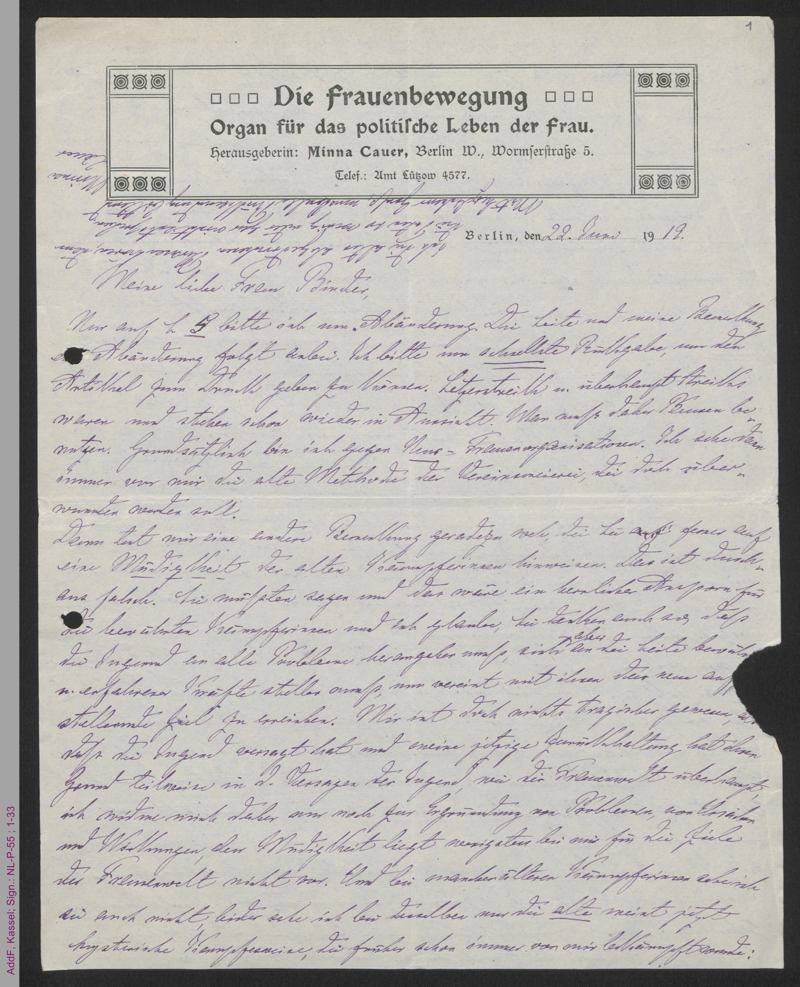 1
Die Frauenbewegung
Organ für das politische Leben der Frau.
Herausgeberin: Minna Cauer, Berlin W., Wormserstraße 5.
Telef.: Amt Lützow 4577.
Berlin, den 22. Juni 1919.
Meine liebe Frau Binder,
Nur auf S. 5 bitte ich um Abänderung. Die Seite und meine Bemerkung
Abänderung folgt anbei. Ich bitte um schnellste Rückgabe, um den
Artikel zum Druck geben zu können. Setzerstreik u. überhaupt Streiks
waren und stehen schon wieder in Aussicht. Man muß daher Pausen be-
nutzen. Grundsätzlich bin ich gegen Neu-Frauenorganisationen. Ich sehe dann
immer vor mir die alte Methode der Vereinsmeierei, die doch über-
wunden werden soll.
Dann tat mir eine andere Bemerkung geradezu weh, die Sie ferner auf
eine Müdigkeit der alten Kämpferinnen hinweisen. Das ist durch-
aus falsch. Sie müßten sagen und das wäre ein herrlicher Ansporn für
die Kämpferinnen und ich glaube, Sie denken auch so, daß
die Jugend an alle Probleme herangehen muß, sich aber an die Seite
u. erfahrener Kräfte stellen muß, um vereint mit ihnen das neue auf
stellende Ziel zu erreichen. Mir ist doch nichts tragischer gewesen, als
daß die Jugend versagt hat und meine jetzige Zurückhaltung hat ihren
Grund teilweise in d. Versagen der Jugend, wie der Frauenwelt überhaupt,
ich widme mich daher nur noch zur Ergründung von Problemen, von
und Wirkungen, denn Müdigkeit liegt wenigstens bei mir für die Ziele
der Frauenwelt nicht vor. Und bei mancher älteren Kämpferin scheint
sie auch nicht, leider sehe ich bei derselben nur die alte meist jetzt
hysterische Kampfesweise, die früher schon immer von mir bekämpft wurde:
Minna
Cauer
AddF, Kassel; Sign.: NL-P-55 ; 1-33